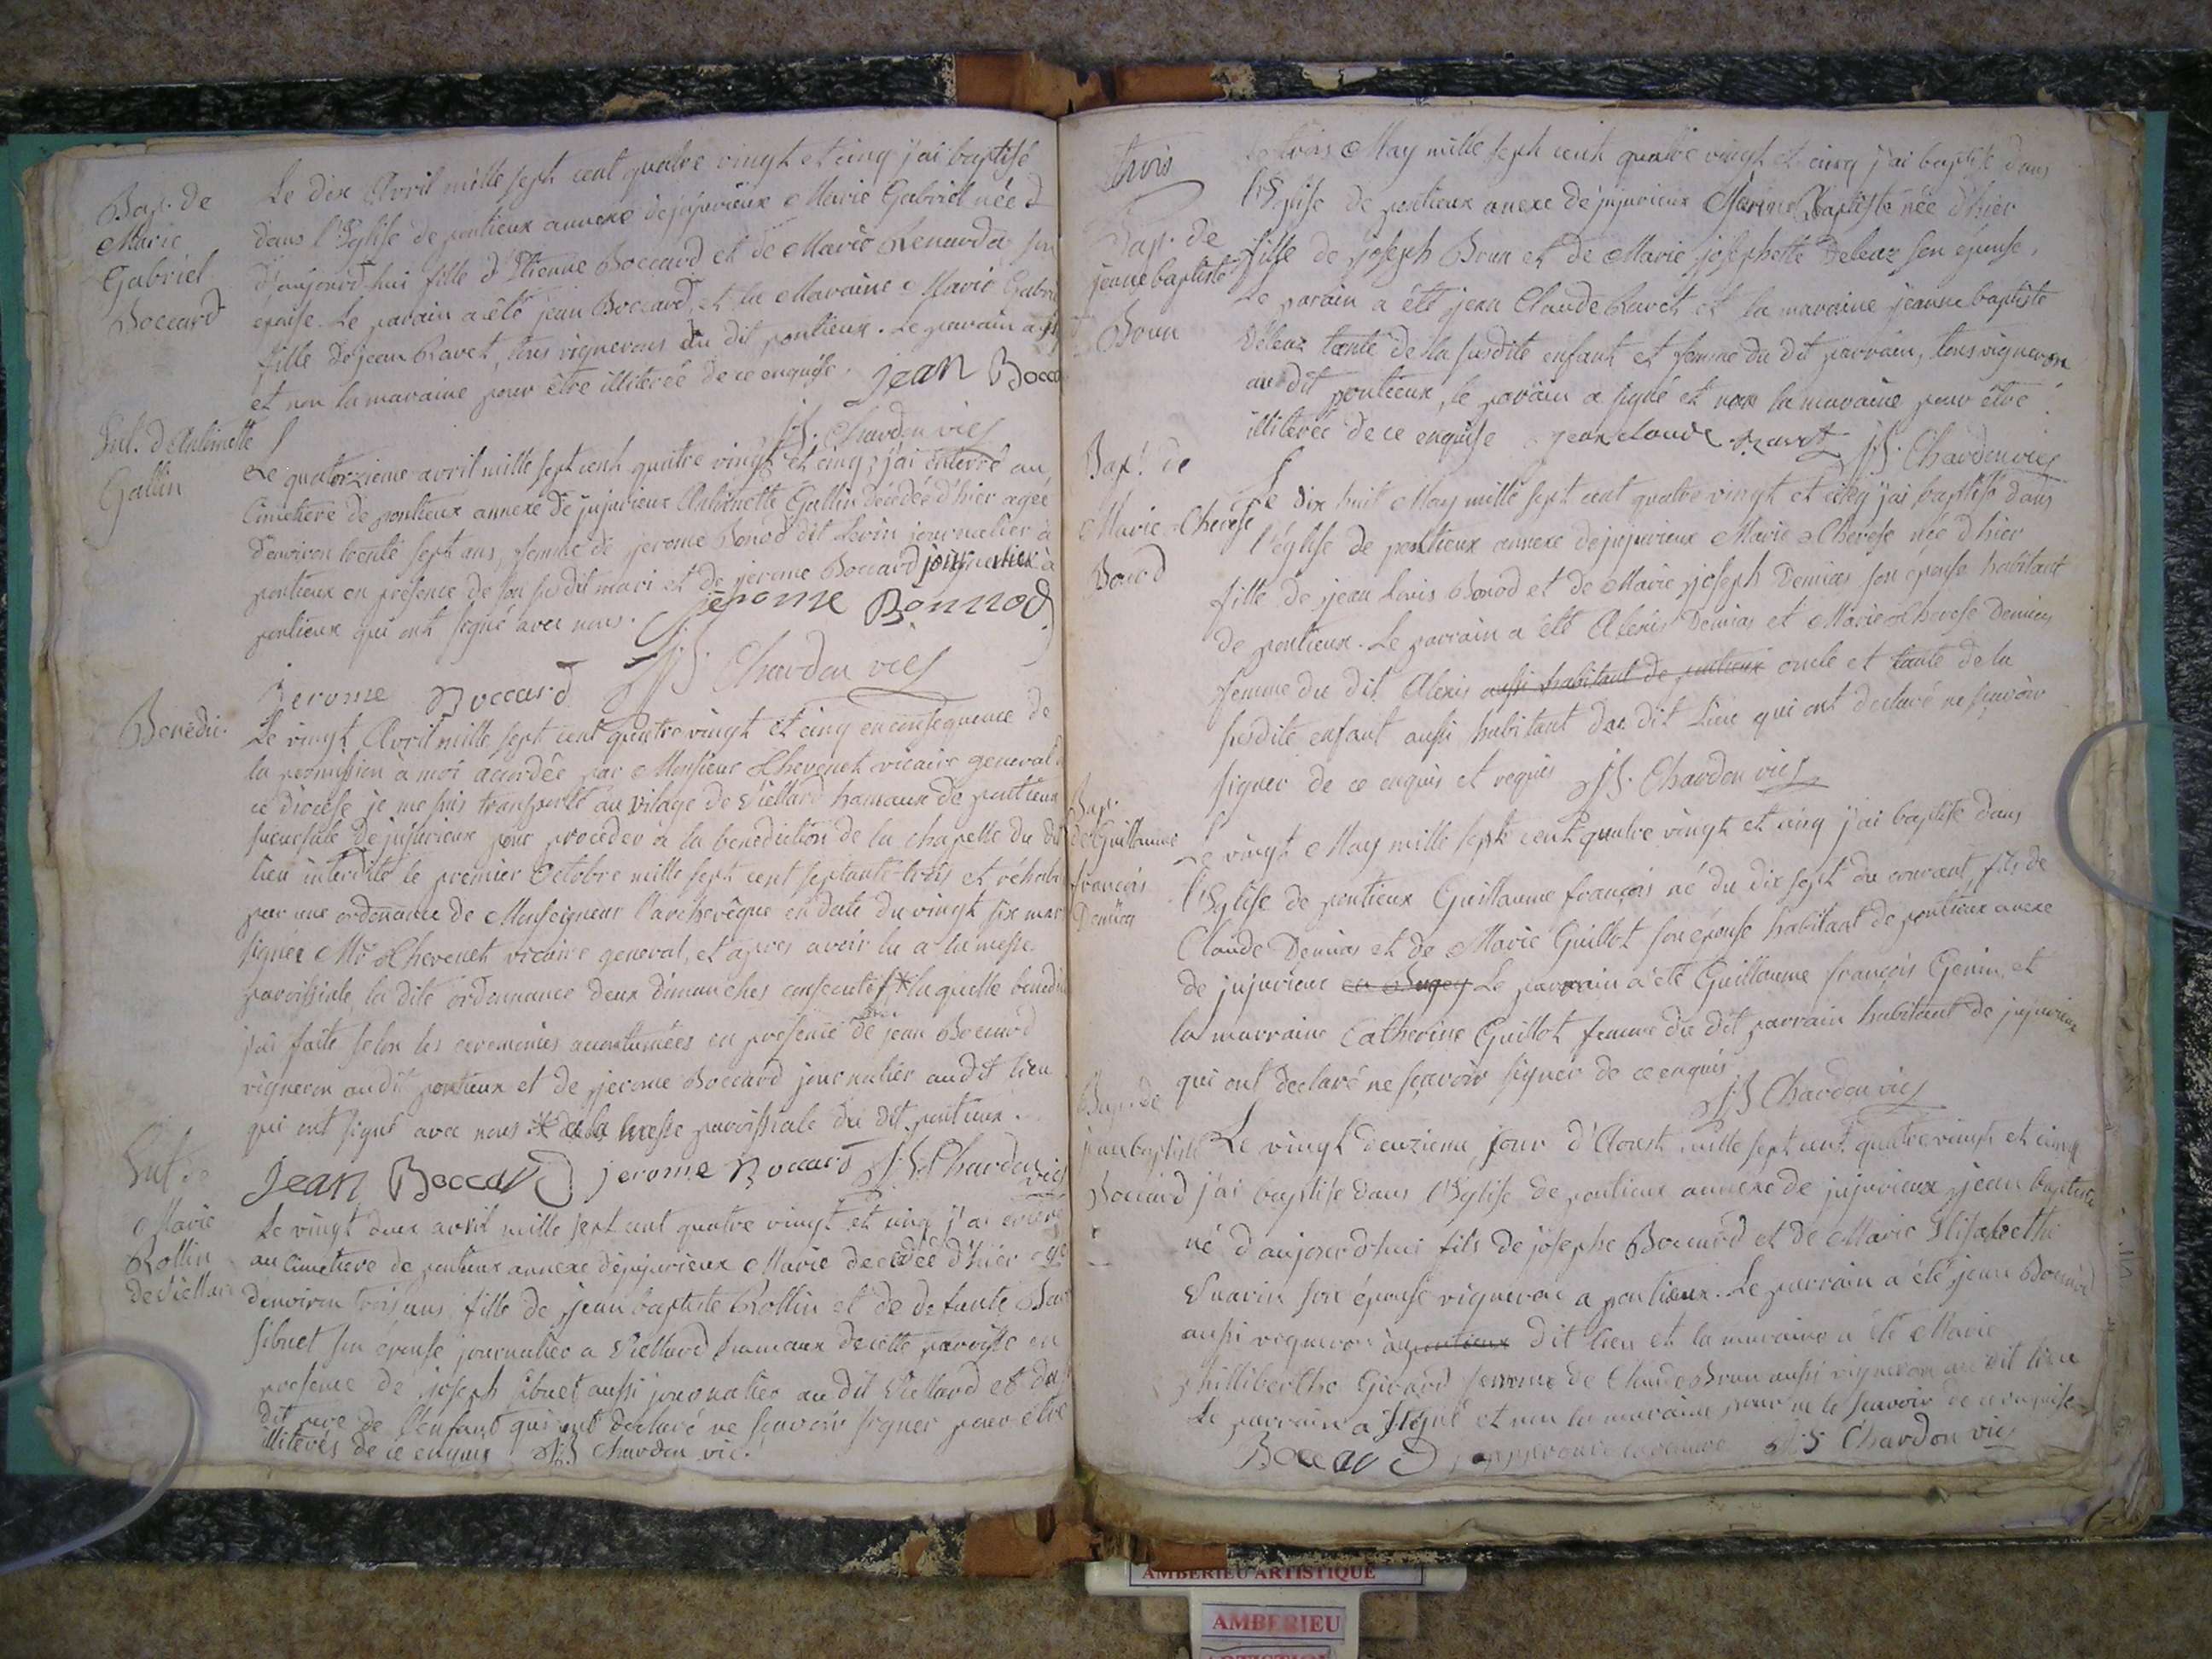 Bap. de
Marie
Gabriel
Boccard
Le dix Avril mille sept cent quatre vingt et cinq j'ai baptisé
dans l'Eglise de pontieux annexe dejujurieux Marie Gabriel née d
d'aujourd'hui fille d'Etienne Boccard et de Marie Renarda son
epouse. Le parain a été jean Boccard, et la Maraine Marie Gabri
fille de jean Ravet, tous vignerons du dit pontieux. Le parain a
et non la maraine pour être illiterée de ce enquise. jean Bocca
J:S. Chardon vic
Ent. d'Antoinette
Gallin
Le quatorzieme avril mille sept cent quatre vingt et cinq j'ai enterré au
Cimetiere de pontieux annexe de jujurieux Antoinette Gallin décédée d'hier agée
d'environ trente sept ans, femme de jerome Bonod dit journalier à
pontieux en presence de son susdit mari et de jerome Boccard journalier à
pontieux qui ont signé avec nous. jerome Bonnod
jerome Boccard J:S. Chardon vic
Benedic.
Le vingt Avril mille sept cent quatre vingt et cinq en consequence de
la permission à moi accordée par Monsieur Thevenet vicaire general
ce diocese je me suis transporté au vilage de Viellard hamaux de pontieux
succursale de jujurieux pour proceder à la benediction de la chapelle du dit
lieu interdite le premier Octobre mille sept cent septante trois et réhabi
par une ordonnance de Monseigneur l'archevêque en date du vingt six mar
signée Mr Thevenet vicaire general, et apres avoir lu a la messe
paroissiale la dite ordonnance deux dimanches consecutifs * laquelle benedi
j'ai faite selon les ceremonies accoutumées en presence de jean Boccard
vigneron au dit pontieux et de jerome Boccard journalier au dit lieu
qui ont signé avec nous * de la messe paroissiale du dit pontieux.
Jean Boccard jerome Boccard J:S. Chardon vic
Ent. de
Marie
Rollin
de Viellard
Le vingt deux avril mille sept cent quatre vingt et cinq j'ai enterré
au Cimetiere de pontieux annexe dejujurieux Marie decedée d'hier agé
d'environ trois ans fille de jean baptiste Rollin et de defunte
sibuet son épouse journalier a Viellard hamaux de cette paroisse en
presence de joseph sibuet aussi journalier au dit Viellard et du
dit pere de l'enfant qui ont declaré ne sçavoir signer pour être
illiterés de ce enquis J:S Chardon vic.
trois
Bap. de
jeanne baptiste
Brun
Le trois May mille sept cent quatre vingt et cinq j'ai baptisé dans
l'Eglise de pontieux anexe de jujurieux Baptiste née d'hier
fille de joseph Brun et de Marie josephette Deleaz son épouse,
Le parain a été jean Claude Ravet et la maraine jeanne baptiste
Déleaz tante de la susdite enfant et femme du dit parrain, tous vigneron
au dit pontieux, le parain a signé et non la maraine pour être
illiterée de ce enquise jean claude Ravet J:S. Chardon vic
Bap.t de
Marie Therese
Bonod
Le dix huit May mille sept cent quatre vingt et cinq j'ai baptisé dans
l'église de pontieux annexe de jujurieux Marie Therese née d'hier
fille de jean Louis Bonod et de Marie joseph Demias son épouse habitant
de pontieux. Le parrain a été Alexis Demias et Marie Therese Demias
femme du dit Alexis aussi habitant de pontieux oncle et tante de la
susdite enfant aussi habitant du dit Lieu qui ont declaré ne sçavoir
signer de ce enquis et requis J:S. Chardon vic
Bap.
de Guillaume
françois
Demias
Le vingt May mille sept cent quatre vingt et cinq j'ai baptisé dans
l'Eglise de pontieux Guillaume françois né du dix sept du courant, fils de
Claude Demias et de Marie Guillot son épouse habitant de pontieux anexe
de jujurieux en Bugey Le parrain a été Guillaume françois Genin, et
la marraine Catherine Guillot femme du dit parrain habitant de jujurieux
qui ont declaré ne sçavoir signer de ce enquis
J:S Chardon vic
Bap. de
jean baptiste
Boccard
Le vingt deuzieme jour d'Aoust mille sept cent quatre vingt et cinq
j'ai baptisé dans l'Eglise de pontieux annexe de jujurieux jean baptiste
né d'aujourd'hui fils de josephe Boccard et de Marie Elisabeth
Savarin son épouse vigneron a pontieux. Le parrain a été jean Boccard
aussi vigneron au pontieux dit lieu et la maraine a été Marie
philliberthe Girard femme de Claude Brun aussi vigneron au dit lieu
Le parrain a signé et non la maraine pour ne le sçavoir de ce enquise
Boccard j'approuve J:S Chardon vic
AMBERIEU ARTISTIQUE
AMBERIEU